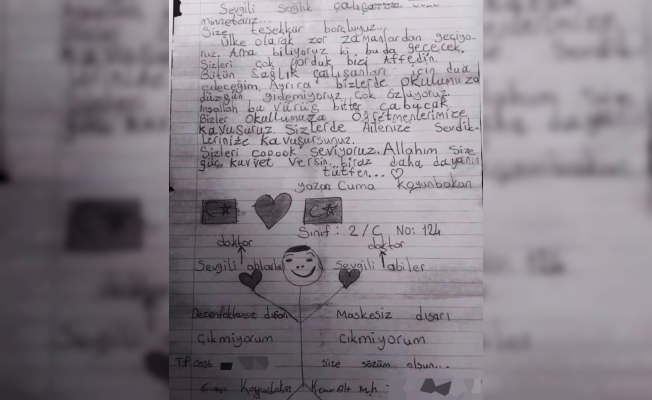 Sevgili Sağlık çalışanları
minnetarız...
Size teşekkür borçluyuz.
Ülke olarak zor zamanlardan geçiyo-
ruz. Ama biliyoruz ki bu da geçecek.
Sizleri çok yorduk bizi Affedin.
Bütün Sağlık çalışanları için dua
edeceğim. Ayrıca bizlerde okulumuza
düzgün gidemiyoruz çok özlüyoruz.
İnşallah bu vürüs bitter çabuçak
Bizler okullumuza Öğretmenlerimize
kavuşuruz. Sizlerde Ailenize Sevdik-
lerinize kavuşursunuz.
Sizleri çooook seviyoruz. Allahım Size
güç kuvvet versin... biraz daha dayanın
lütfen... ♡
yazan Cuma koyunbakan
Sınıf: 2/C No: 124
doktor doktor
Sevgili ablarla Sevgili abiler
Dezenfektansız dışarı Maskesiz dışarı
Çıkmiyorum Cıkmiyorum
Tlf: 0536 size sözüm olsun...
Cuma